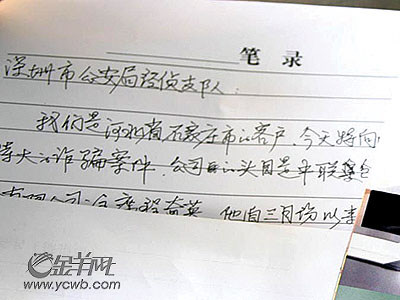 笔录
深圳市公安局经侦支队:
我们是河北省石家庄市的客户,今天特向
特大的诈骗案件,公司的头目是中联集
有限公司 他自三月份以来
金羊网
www.ycwb.com